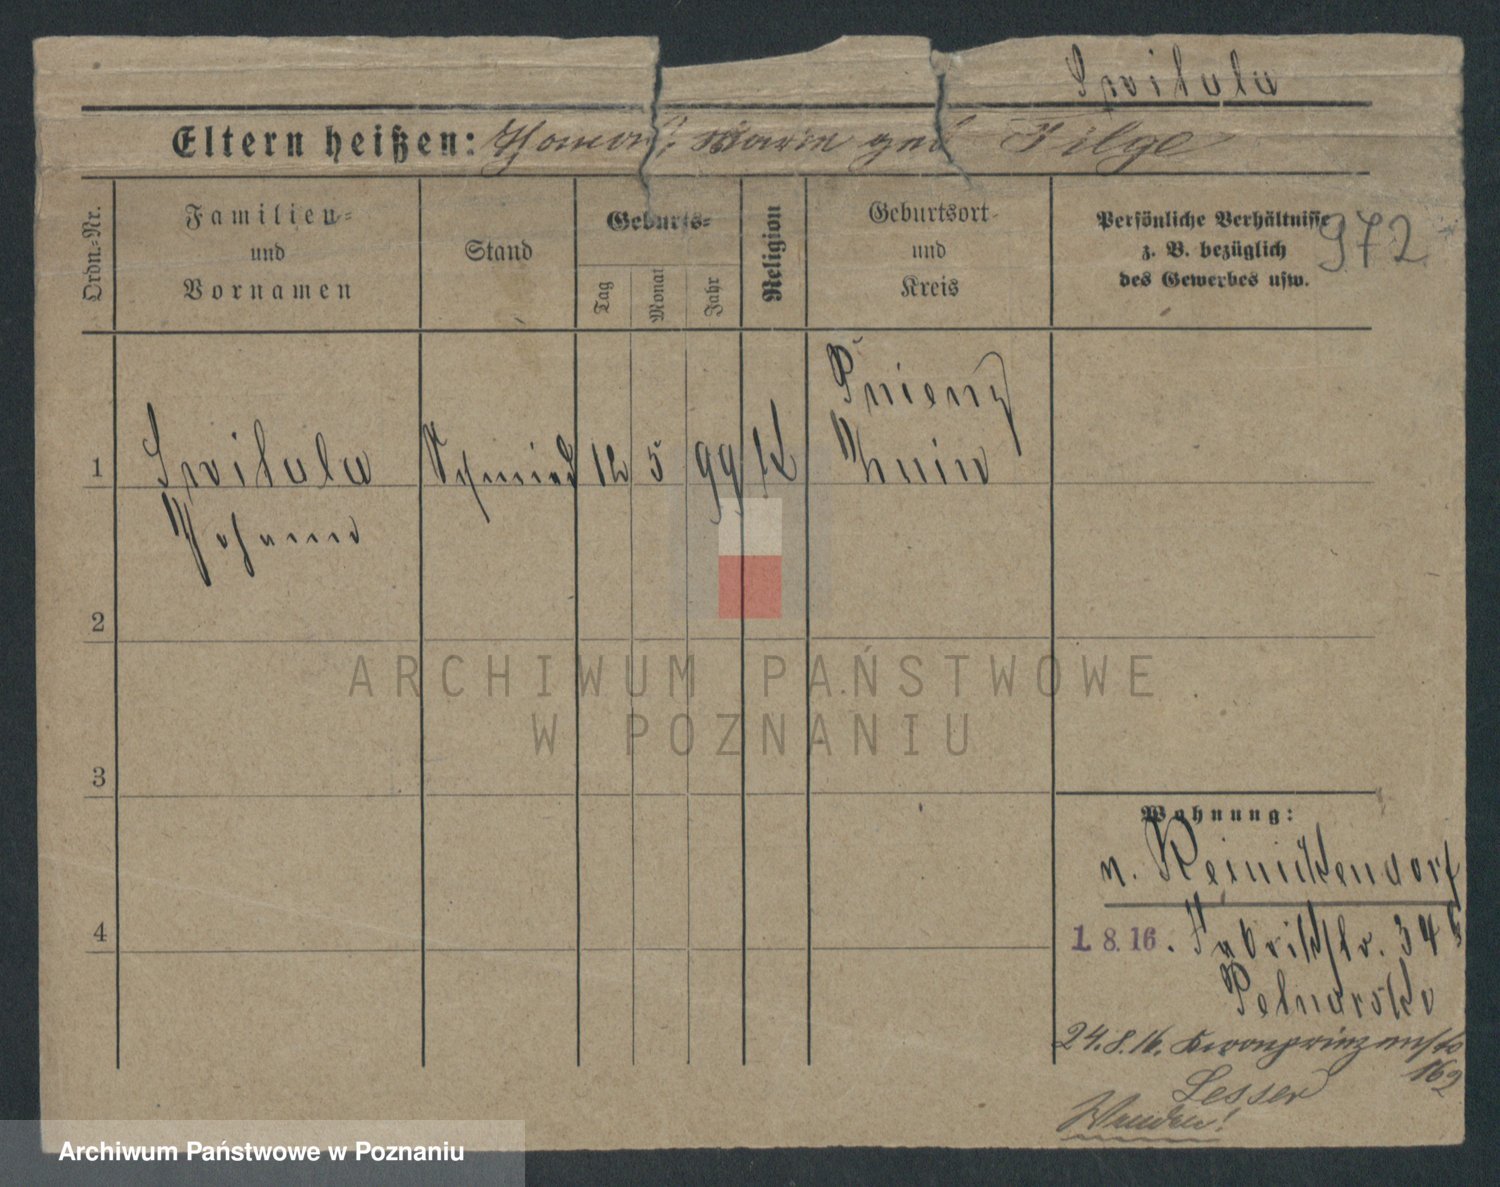 Switala
Eltern heißen: Thomas, Marie geb Filge
972
Ordn.-Nr.
Familien-
und
Vornamen
Stand
Geburts-
Tag
Monat
Jahr
Religion
Geburtsort
und
Kreis
Persönliche Verhältnisse
z. B. bezüglich
des Gewerbes usw.
1
Switala
Johann
Schmied
12
5
99
K
Znin
2
3
4
Wohnung:
n. Reinickendorf
1. 8. 16. Fabrikstr. 34
24.8.16. Kronprinzenstr
162
Lesser
Wenden!
ARCHIWUM PAŃSTWOWE
W POZNANIU
Archiwum Państwowe w Poznaniu